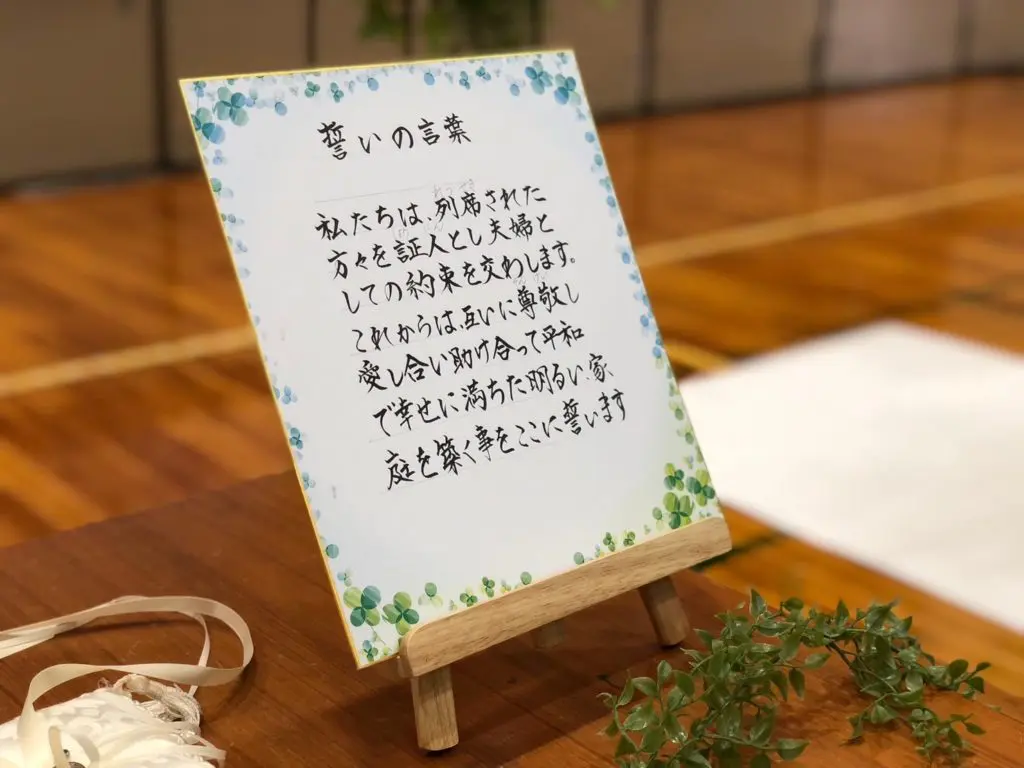 誓いの言葉
私たちは、列席された
方々を証人とし夫婦と
しての約束を交わします。
これからは、互いに尊敬し
愛し合い助け合って平和
で幸せに満ちた明るい家
庭を築く事をここに誓います